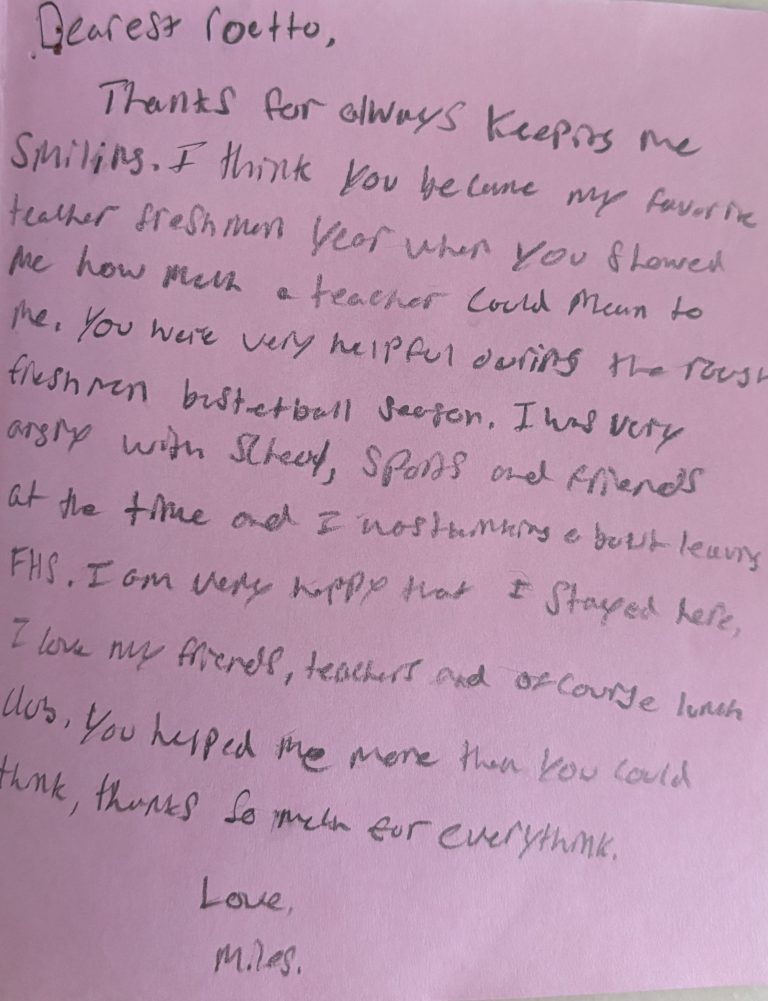 Dearest roetto,
Thanks for always Keeping me
Smiling. I think you became my favorite
teacher freshmen year when you showed
me how much a teacher could mean to
me. You were very helpful during the rough
freshmen basketball season. I was very
angry with School, Sports and friends
at the time and I was thinking about leaving
FHS. I am very happy that I Stayed here,
I love my friends, teachers and of course lunch
club, you helped me more then you could
think, thanks so much for everythink.
Love,
Miles.